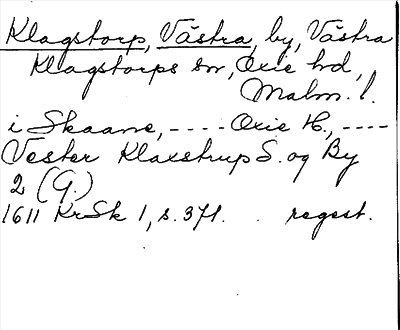 Klagstorp, Västra, by, Västra
Klagstorps sn, Oxie hd,
Malm. l.
i Skaane, ---- Oxie H., ----
Vester Klaxstrup S. og By
2 (G.)
1611 KrSk 1, s. 371. . regest.